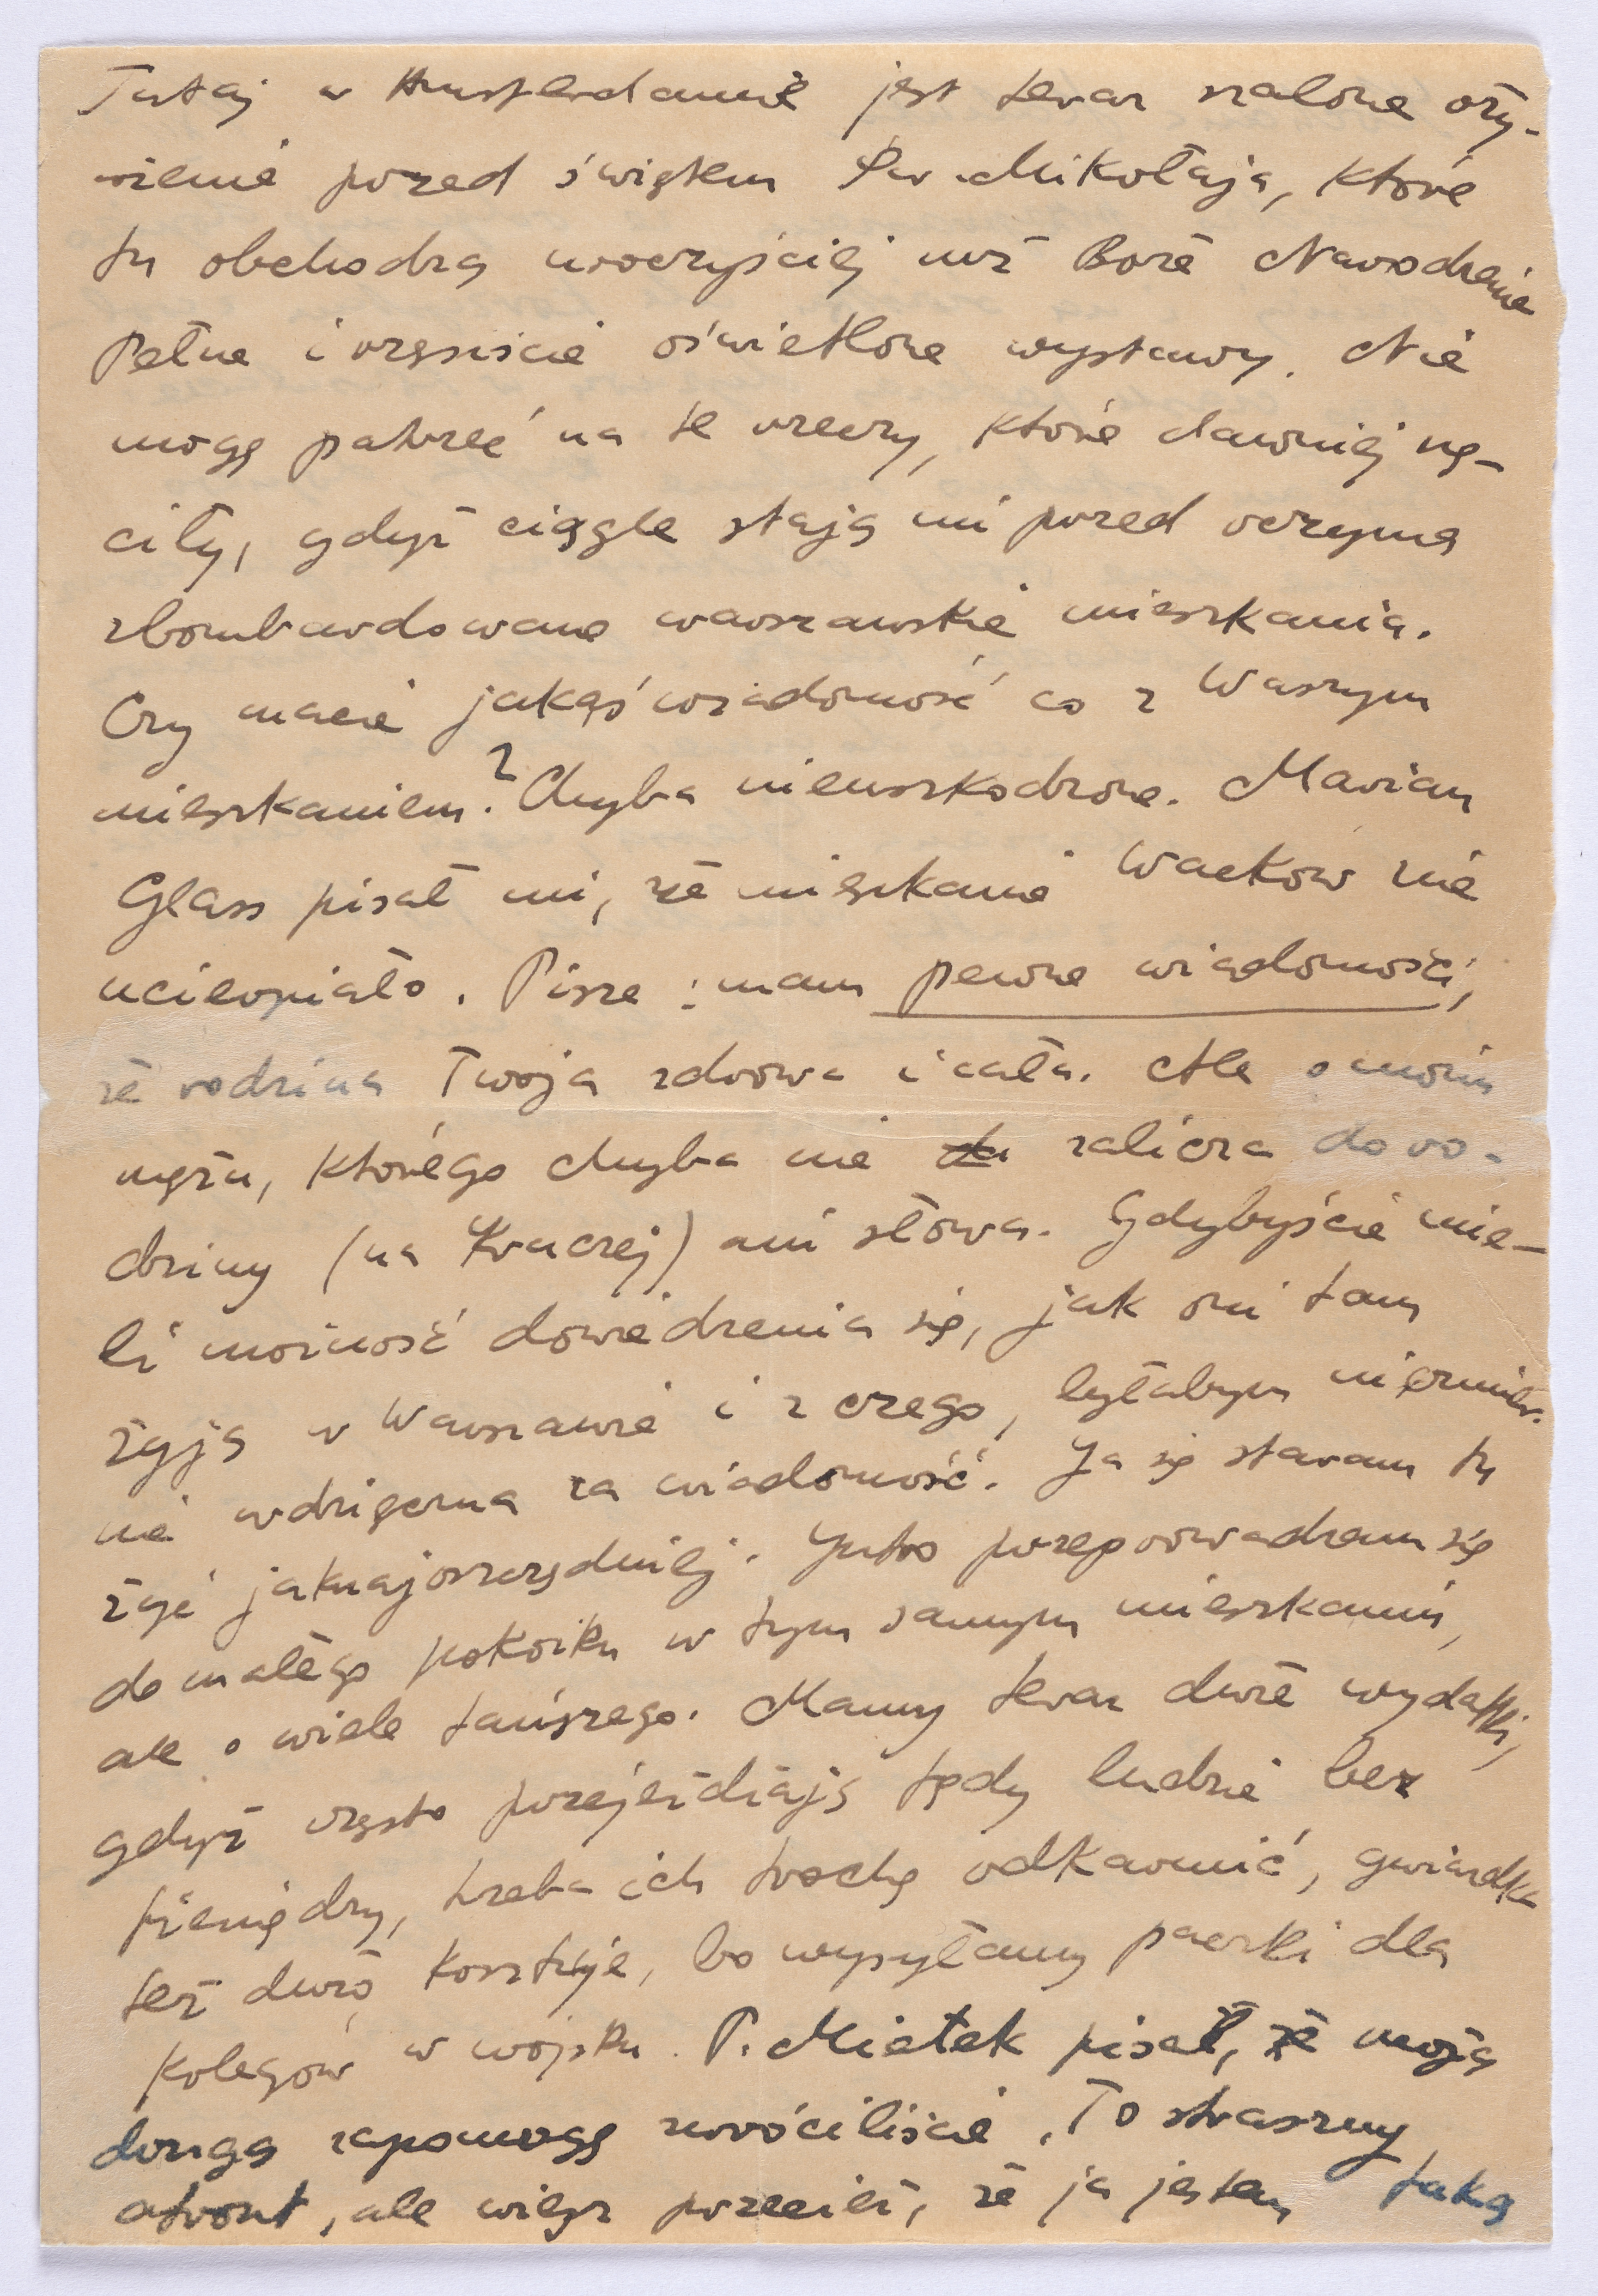 Tutaj w Amsterdamie jest teraz szalone oży-
wienie przed świętem Św. Mikołaja, które
tu obchodzą uroczyściej niż Boże Narodzenie
Pełne i rzęsiście oświetlone wystawy. Nie
mogę patrzeć na te rzeczy, które dawniej nę-
ciły, gdyż ciągle stają mi przed oczyma
zbombardowane warszawskie mieszkania.
Czy macie jakąś wiadomość co z Waszym
mieszkaniem? Chyba nieuszkodzone. Marian
Glass pisał mi, że mieszkanie Wacków nie
ucierpiało. Pisze: mam pewne wiadomości,
że rodzina Twoja zdrowa i cała. Ale o moim
mężu, którego chyba nie zalicza do ro-
dziny (na Kruczej) ani słowa. Gdybyście mie-
li możność dowiedzenia się, jak oni tam
żyją w Warszawie i z czego, byłabym niezmier-
nie wdzięczna za wiadomość. Ja się staram tu
żyć jaknajoszczędniej. Jutro przeprowadzam się
do małego pokoiku w tym samym mieszkaniu,
ale o wiele tańszego. Mamy teraz duże wydatki,
gdyż często przejeżdżają tędy ludzie bez
pieniędzy, trzeba ich trochę odkarmić, gwiazdka
też dużo kosztuje, bo wysyłamy paczki dla
kolegów w wojsku. P. Mietek pisał, że moją
drugą zapomogę zwróciliście. To straszny
afront, ale wiesz przecież, że ja jestem taką